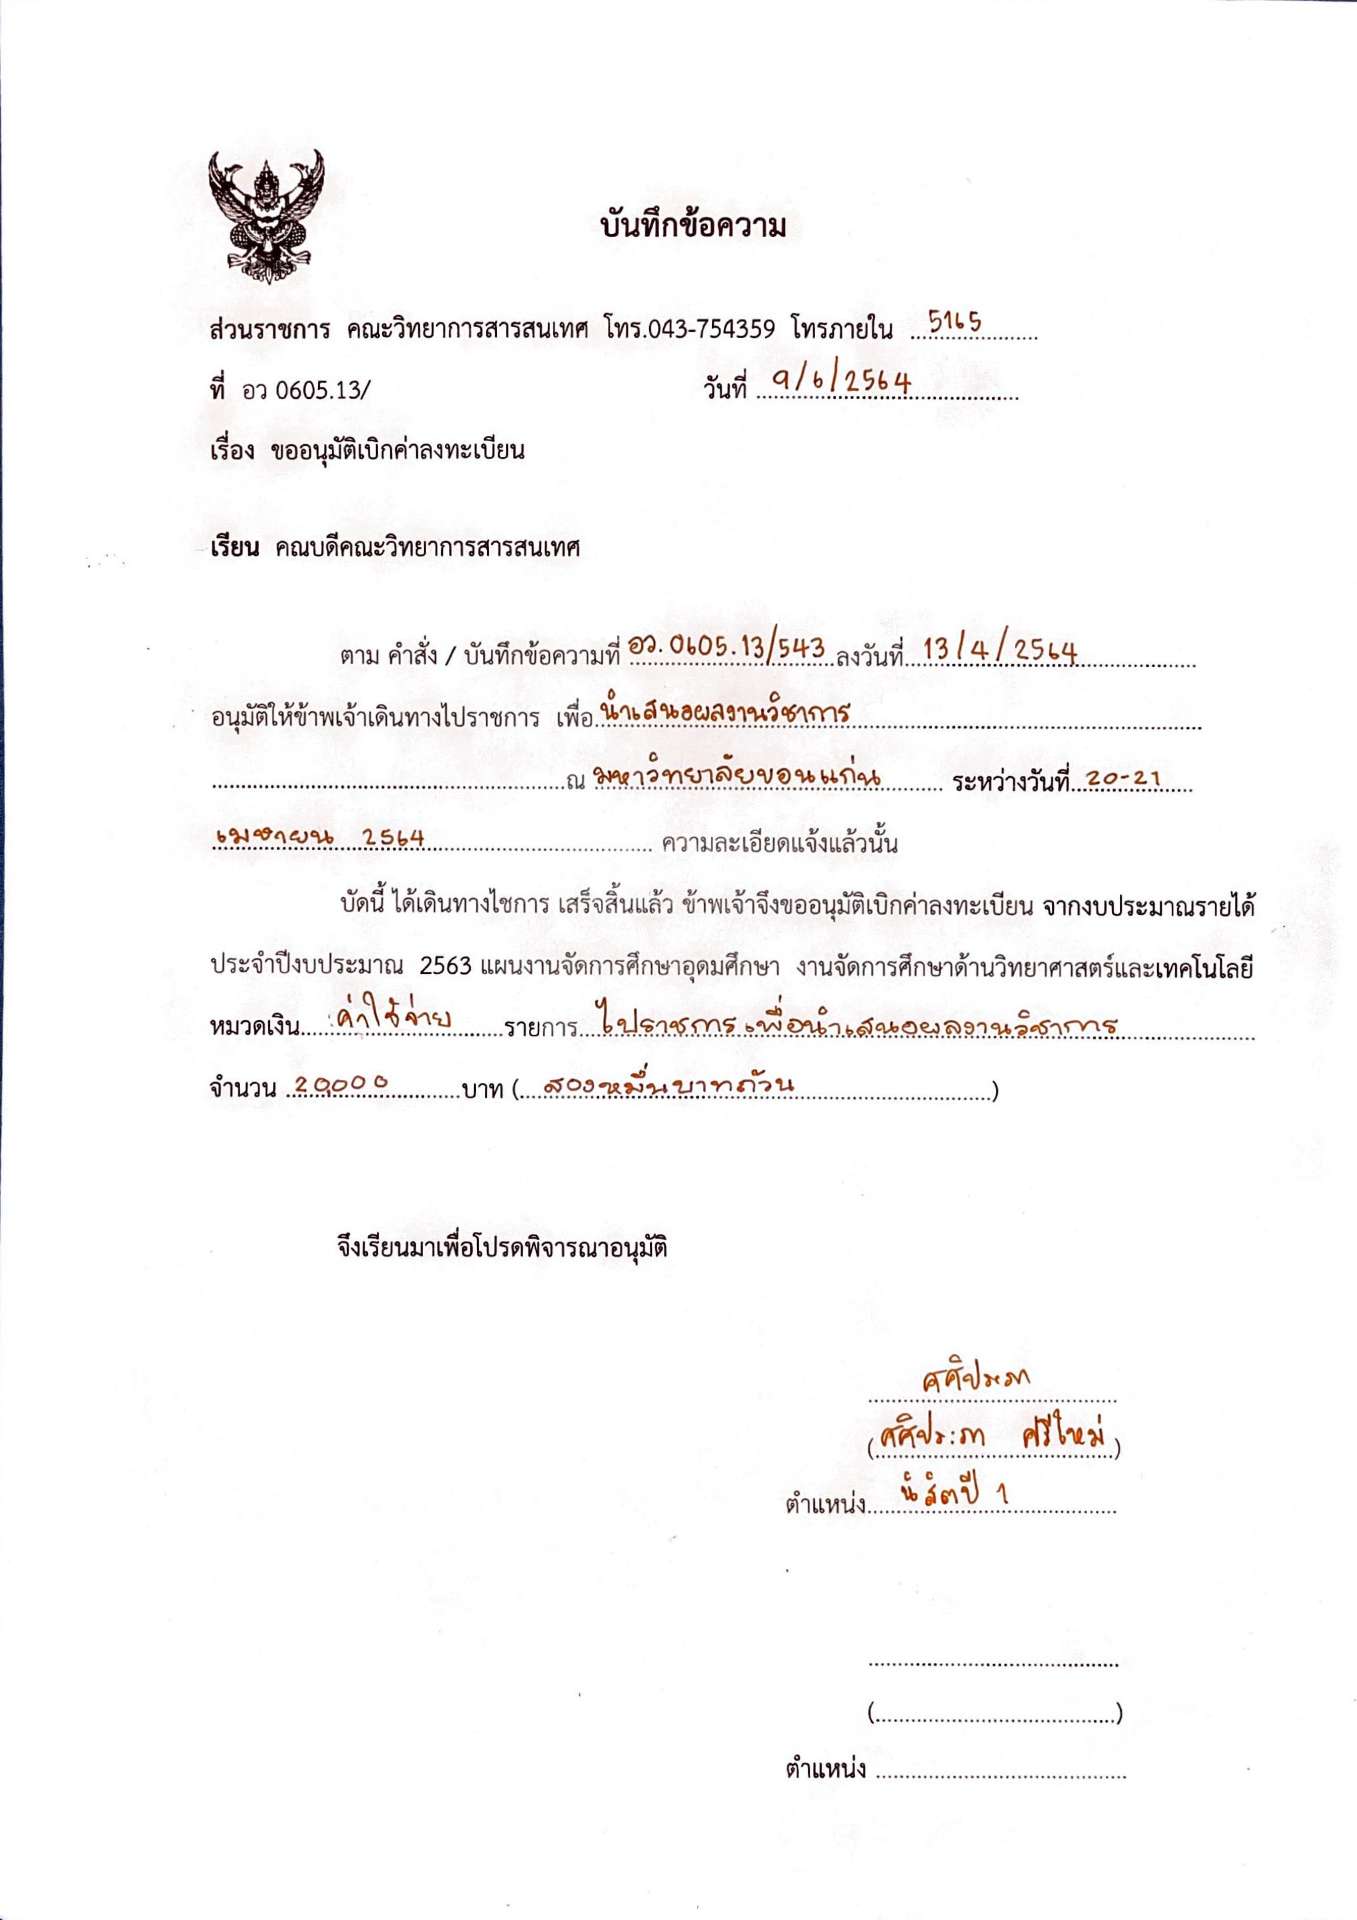 บันทึกข้อความ
ส่วนราชการ คณะวิทยาการสารสนเทศ โทร.043-754359 โทรภายใน 5165
ที่ อว 0605.13/ วันที่ 9/6/2564
เรื่อง ขออนุมัติเบิกค่าลงทะเบียน
เรียน คณบดีคณะวิทยาการสารสนเทศ
ตาม คำสั่ง / บันทึกข้อความที่ อว.0605.13/543 ลงวันที่ 13/4/2564
อนุมัติให้ข้าพเจ้าเดินทางไปราชการ เพื่อ นำเสนอผลงานวิชาการ
ณ มหาวิทยาลัยขอนแก่น ระหว่างวันที่ 20-21
เมษายน 2564 ความละเอียดแจ้งแล้วนั้น
บัดนี้ ได้เดินทางไชการ เสร็จสิ้นแล้ว ข้าพเจ้าจึงขออนุมัติเบิกค่าลงทะเบียน จากงบประมาณรายได้
ประจำปีงบประมาณ 2563 แผนงานจัดการศึกษาอุดมศึกษา งานจัดการศึกษาด้านวิทยาศาสตร์และเทคโนโลยี
หมวดเงิน ค่าใช้จ่าย รายการ ไปราชการเพื่อนำเสนอผลงานวิชาการ
จำนวน 20,000 บาท ( สองหมื่นบาทถ้วน )
จึงเรียนมาเพื่อโปรดพิจารณาอนุมัติ
ศศิประภา
(ศศิประภา ศรีใหม่)
ตำแหน่ง นิสิตปี 1
(....................)
ตำแหน่ง ....................